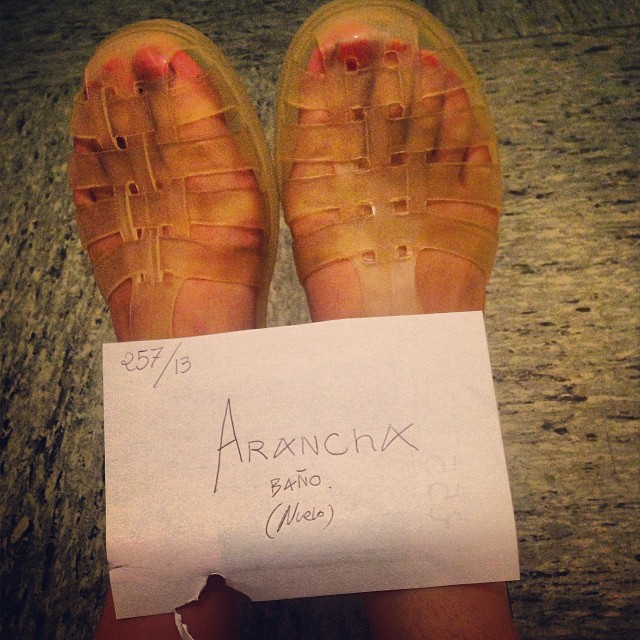 257/13
ARANCHA
BAÑO.
(Nuevo)